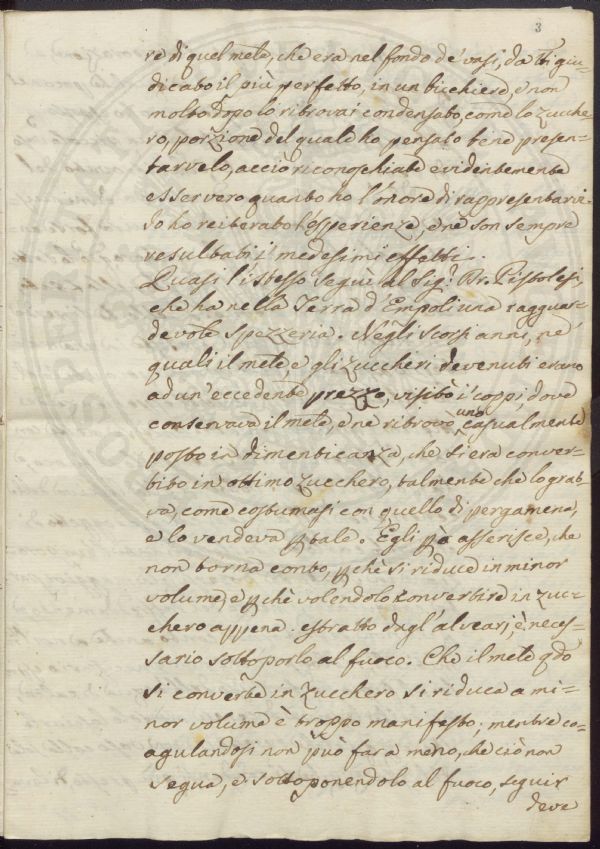 3
re di quel mele, che era nel fondo de' vasi, da me giu=
dicato il più perfetto, in un bicchiere, e non
molto dopo lo ritrovai condensato, come lo zucche=
ro, porzione del quale ho pensato bene presen=
tarvelo, acciò riconoschiate evidentemente
esser vero quanto ho l'onore di rappresentarvi.
Io ho reiterato l'esperienze, e ne son sempre
resultati i medesimi effetti.
Quasi l'istesso seguì al Sig.r Dr. Pistolesi,
che ha nella Terra d'Empoli una ragguar=
devole spezzeria. Negli scorsi anni, ne'
quali il mele, e gli zuccheri devenuti erano
ad un'eccedente prezzo, visitò i coppi, dove
conservava il mele, e ne ritrovò uno casualmente
posto in dimenticanza, che si era conver=
tito in ottimo zucchero, talmente che lo grat=
tava, come costumasi con quello di pergamena,
e lo vendeva ꝑ tale. Egli ꝑò asserisce, che
non torna conto, ꝑchè si riduce in minor
volume, e ꝑchè volendolo convertire in zuc=
chero appena estratto dagl'alveari, è neces=
sario sottoporlo al fuoco. Che il mele qdo
si converte in zucchero si riduca a mi=
nor volume è troppo manifesto; mentre co=
agulandosi non può fara meno, che ciò non
segua, e sottoponendolo al fuoco, seguir
deve